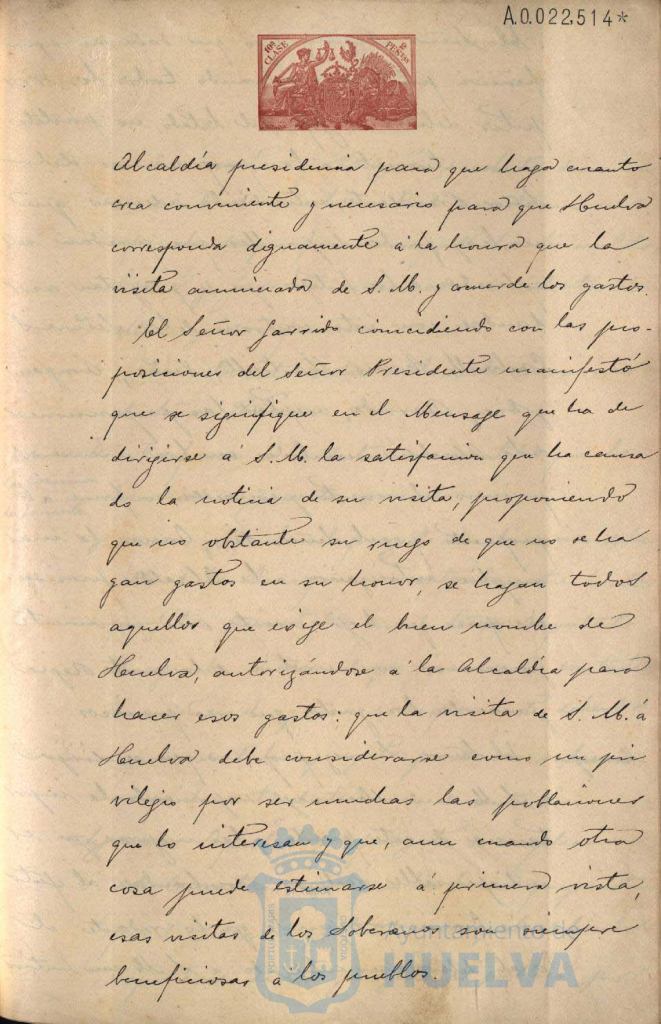 A.0.022.514*
10ª CLASE
PESETAS
Alcaldía presidencia para que haga cuanto
crea conveniente y necesario para que Huelva
corresponda dignamente á la honra que la
visita anunciada de S. M. y acuerde los gastos.
El Señor Garrido coincidiendo con las pro-
posiciones del Señor Presidente manifestó
que se signifique en el Mensage que ha de
dirigirse á S. M. la satisfacción que ha causa
do la noticia de su visita, proponiendo
que no obstante su ruego de que no se ha
gan gastos en su honor, se hagan todos
aquellos que exige el buen nombre de
Huelva, autorizándose á la Alcaldía para
hacer esos gastos: que la visita de S. M. á
Huelva debe considerarse como un pri
vilegio por ser muchas las poblaciones
que lo interesan y que, aun cuando otra
cosa puede estimarse á primera vista,
esas visitas de los Soberanos son siempre
beneficiosas á los pueblos.
Ayuntamiento de
HUELVA